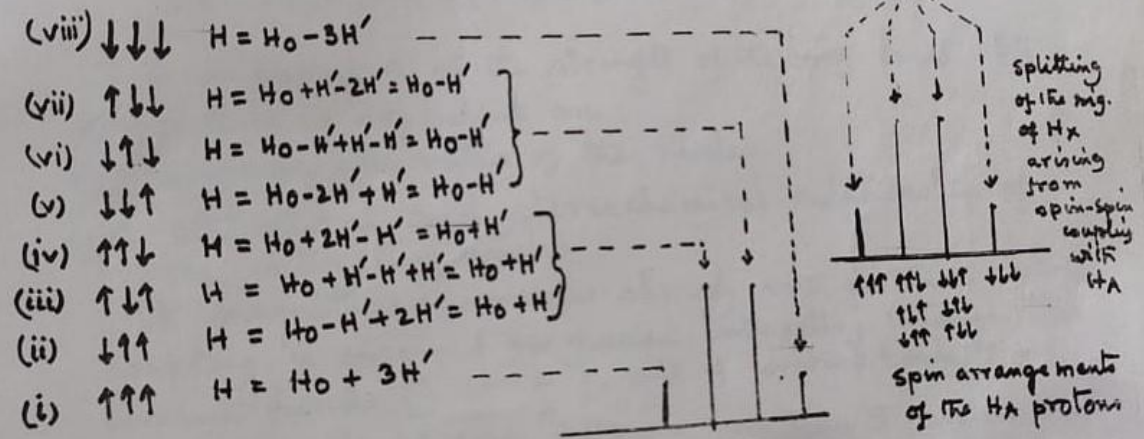 (viii) ↓↓↓ H = H₀ - 3H'
(vii) ↑↓↓ H = H₀ + H' - 2H' = H₀ - H'
(vi) ↓↑↓ H = H₀ - H' + H' - H' = H₀ - H'
(v) ↓↓↑ H = H₀ - 2H' + H' = H₀ - H'
(iv) ↑↑↓ H = H₀ + 2H' - H' = H₀ + H'
(iii) ↑↓↑ H = H₀ + H' - H' + H' = H₀ + H'
(ii) ↓↑↑ H = H₀ - H' + 2H' = H₀ + H'
(i) ↑↑↑ H = H₀ + 3H'
splitting
of the sig.
of Hx
arising
from
spin-spin
coupling
with
HA
↑↑↑ ↑↑↓ ↓↓↑ ↓↓↓
↑↓↑ ↓↑↓
↓↑↑ ↑↓↓
spin arrangements
of the HA protons